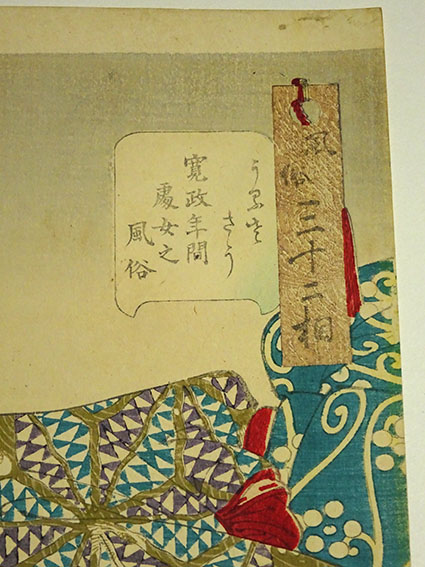 風俗三十二相
うるさ
さう
寛政年間
處女之
風俗